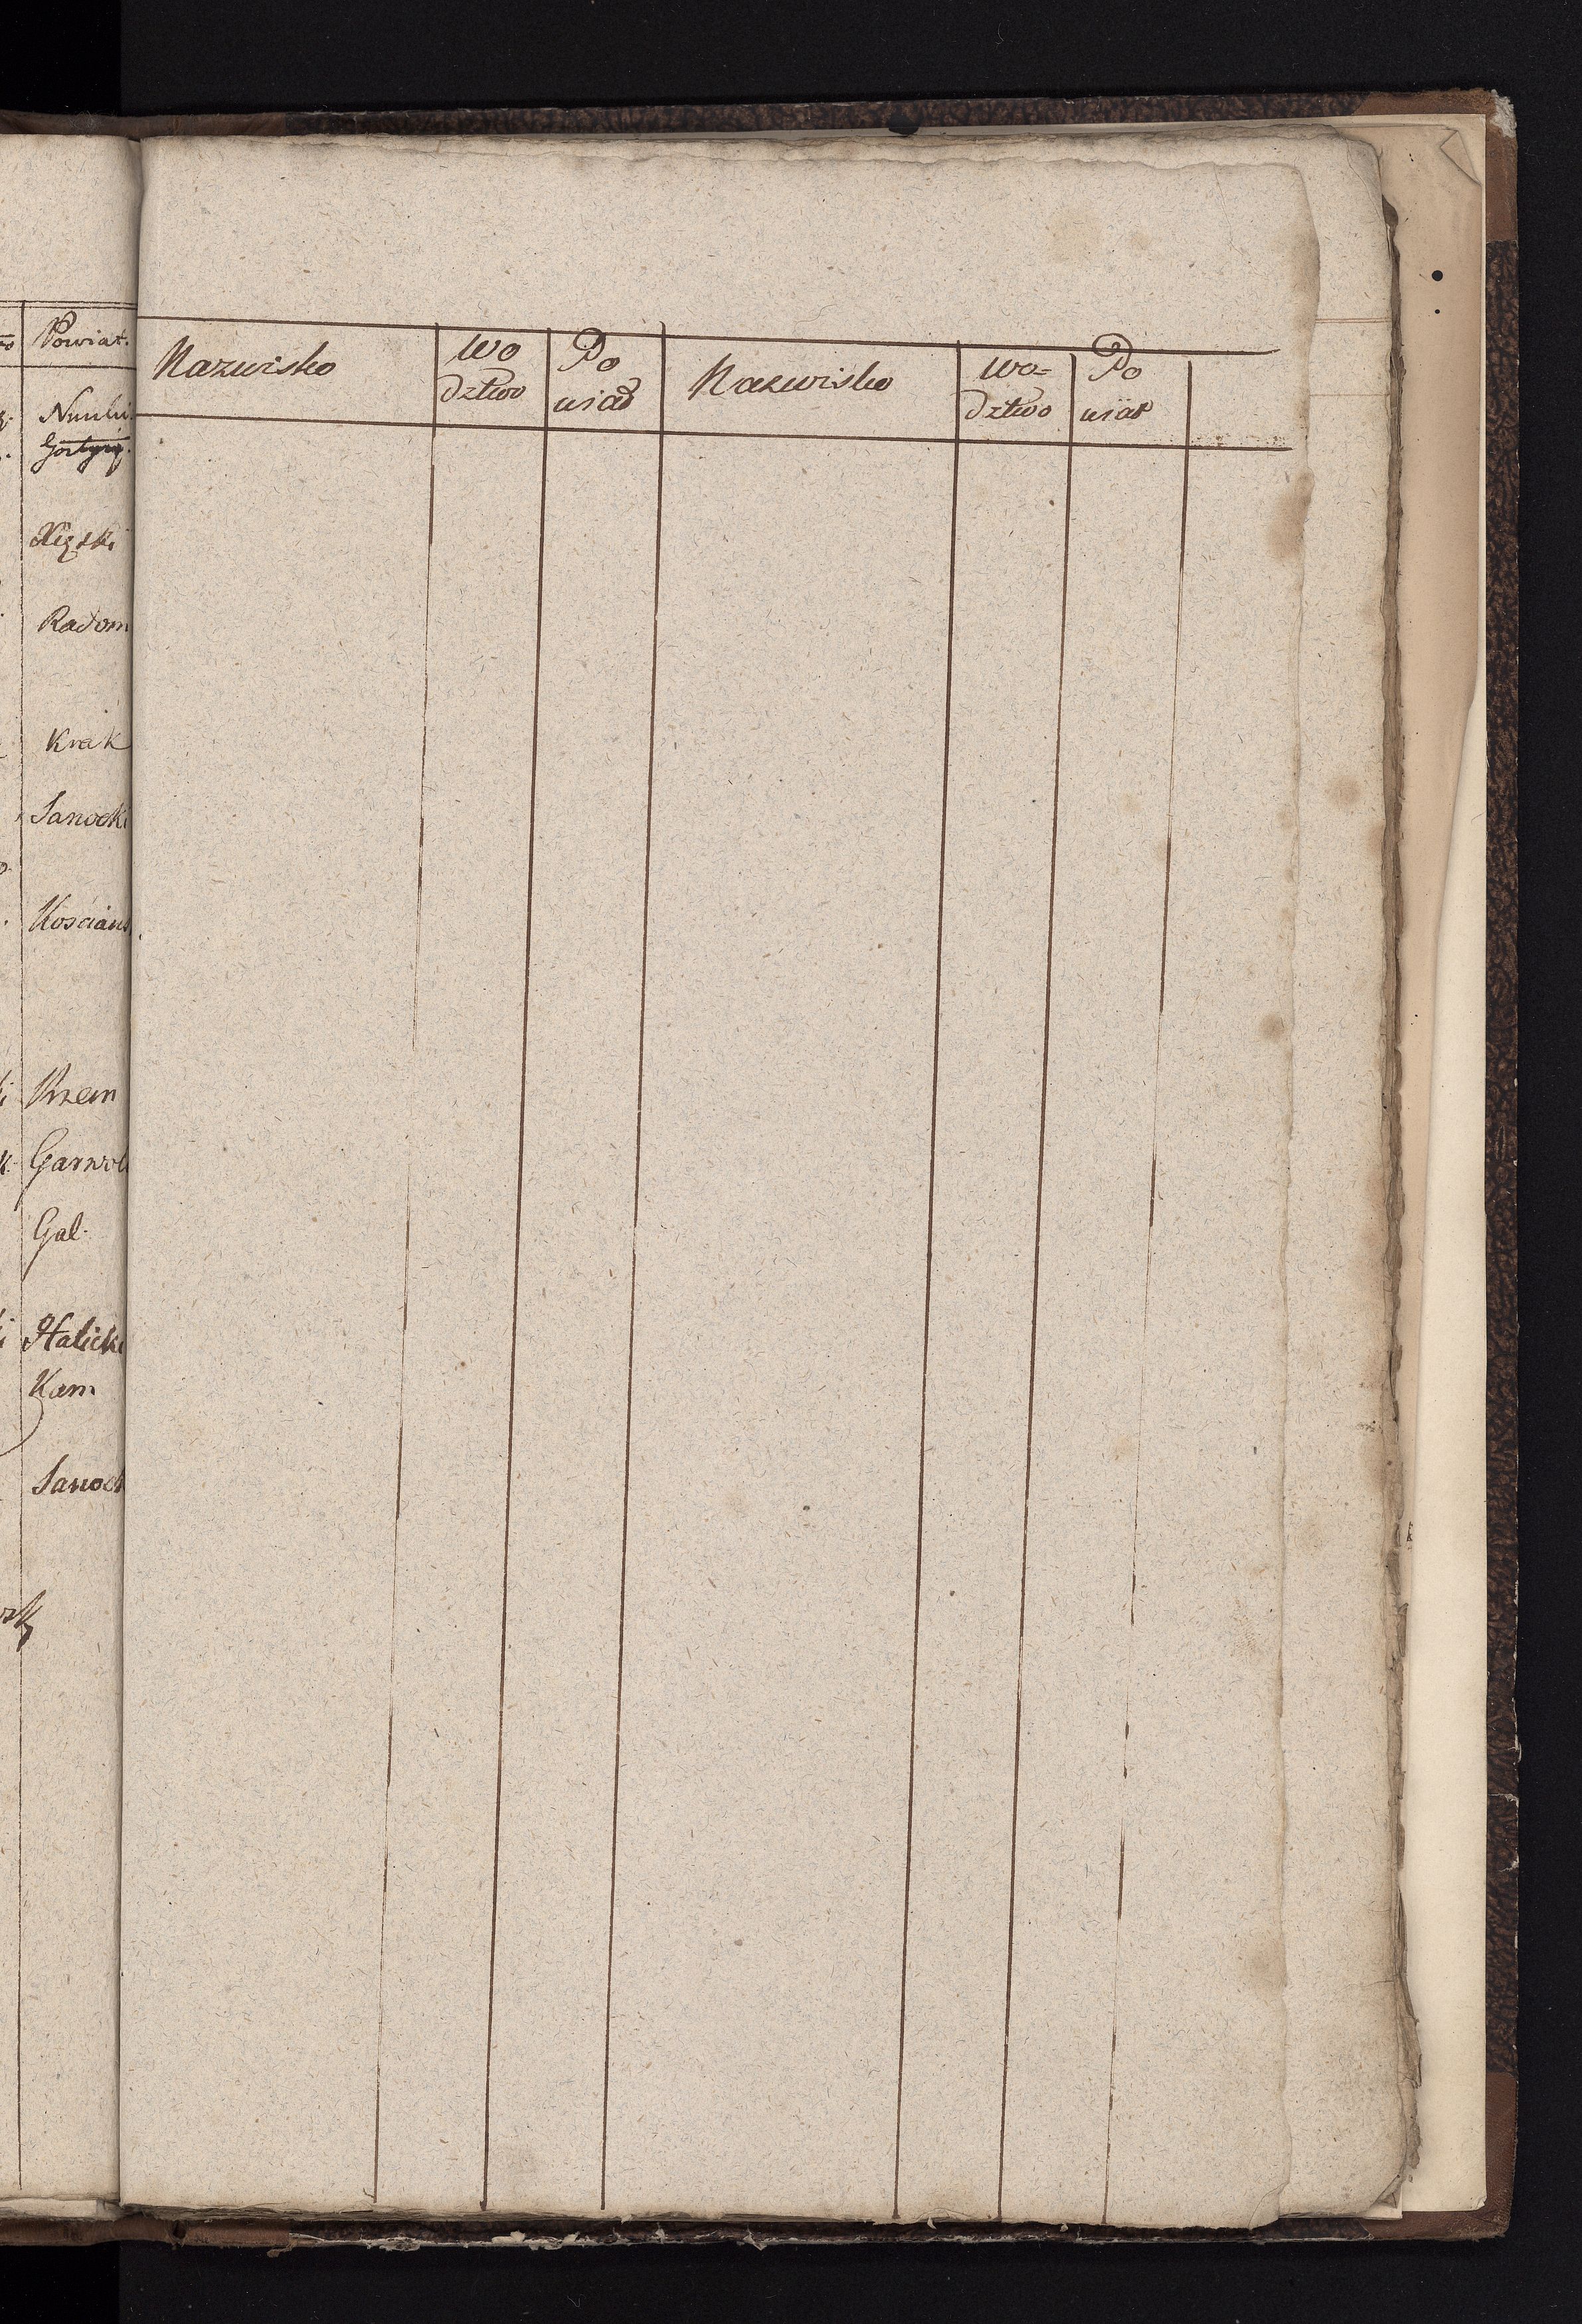 Powiat.
Gostyn.
Xięski
Radom
Krak
Sanocki
Kościans
Krzem
Garwol
Gal.
Halicki
Kam
Sanock
Nazwisko
Wo
dztwo
Po
wiat
Nazwisko
Wo=
dztwo
Po
wiat